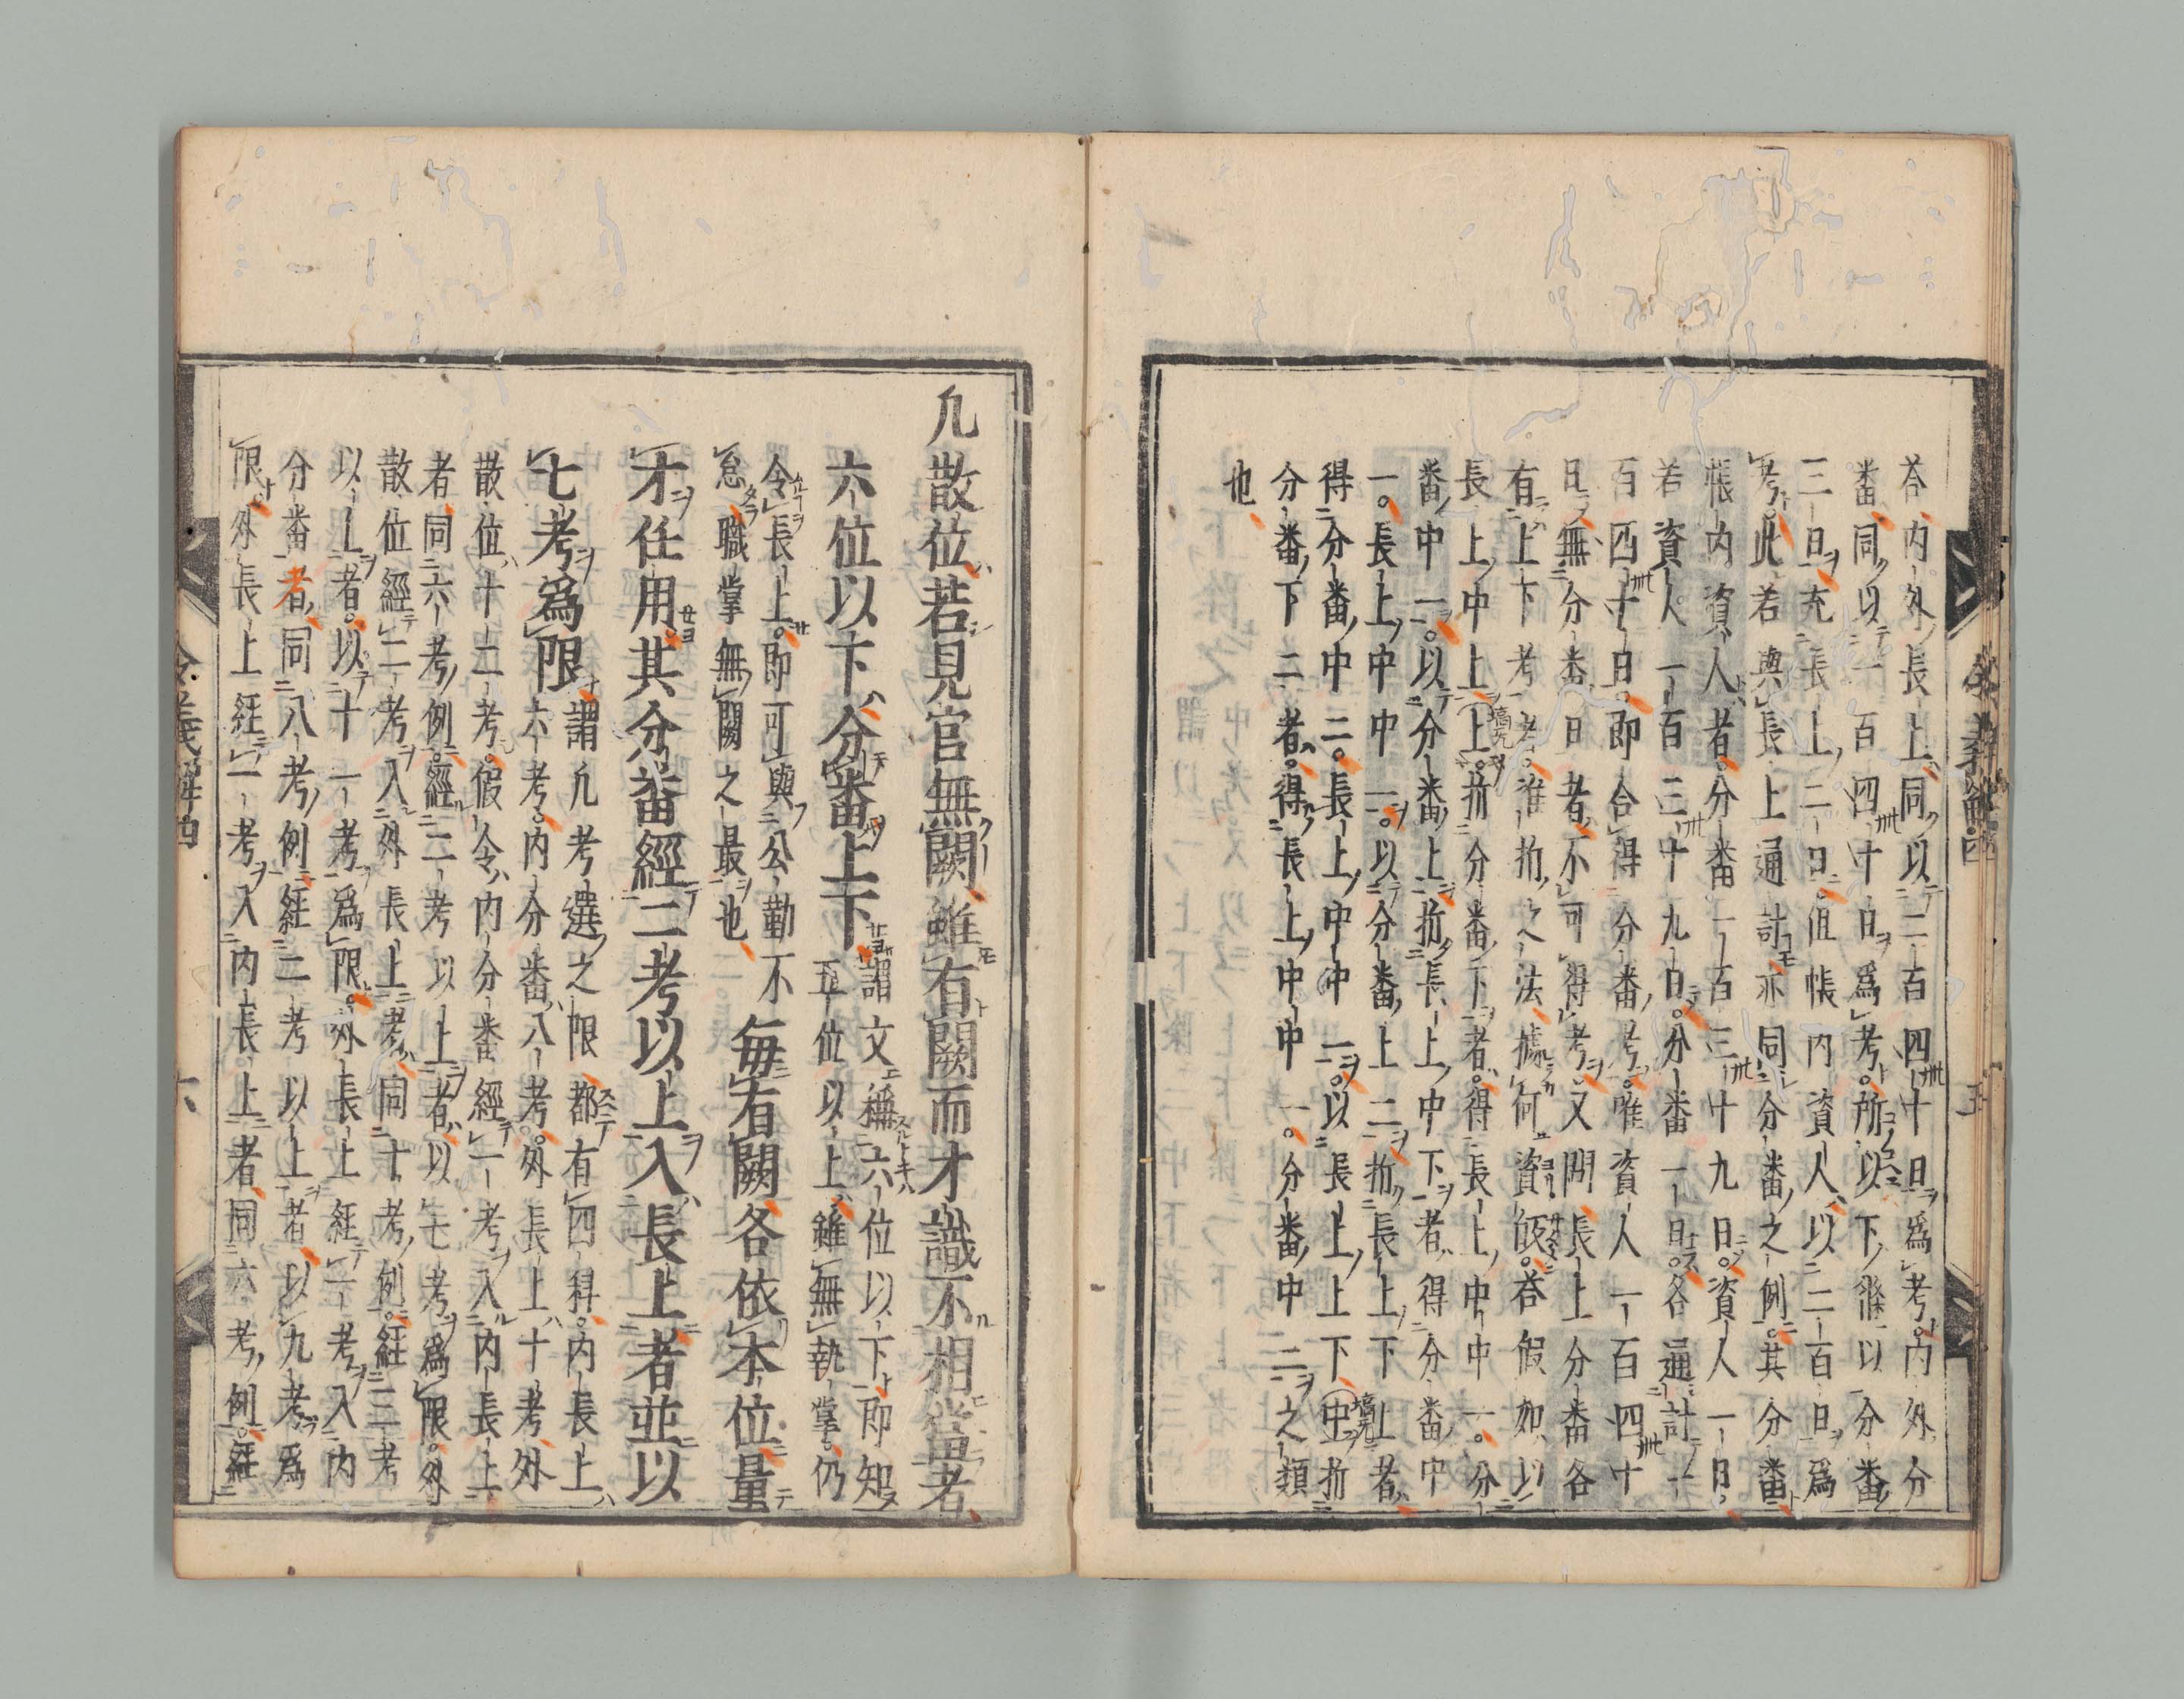 荅内外長上同以二百四十日爲考内外分
番同以一百四十日爲考所以下條以分番
三日充長上二日但帳内資人以二百日爲
考此若與長上通計亦同分番之例其分番
帳内資人者分番一百三十九日資人一日
若資人一百三十九日分番一日各通計一
百四十日即合得分番考唯資人一百四十
日無分番日者不可得考又問長上分番各
有上下考考准折之法據何資㕝荅假如以
長上中上上折分番下者得長上中中一分
番中一以分番上折長上中下者得分番中
一長上中中一以分番上二折長上下上者
得分番中二長上中中一以長上上下中折
分番下二者得長上中中一分番中二之類
也
令義解四
五
凢散位若見官無闕雖有闕而才識不相當者
六位以下分番上下
謂文稱六位以下即知
五位以上雖無執掌仍
令長上即可與公勤不
怠職掌無闕之最也
毎有闕各依本位量
才任用其分番經二考以上入長上者並以
七考爲限
謂凢考選之限都有四科内長上
六考内分番八考外長上十考外
散位十二考假令内分番經一考入内長上
者同六考例經二考以上者以七考爲限外
散位經二考入外長上考同十考例經三考
以上者以十一考爲限外長上經一考入内
分番者同八考例經二考以上者以九考爲
限外長上經一考入内長上者同六考例經
令義解四
六